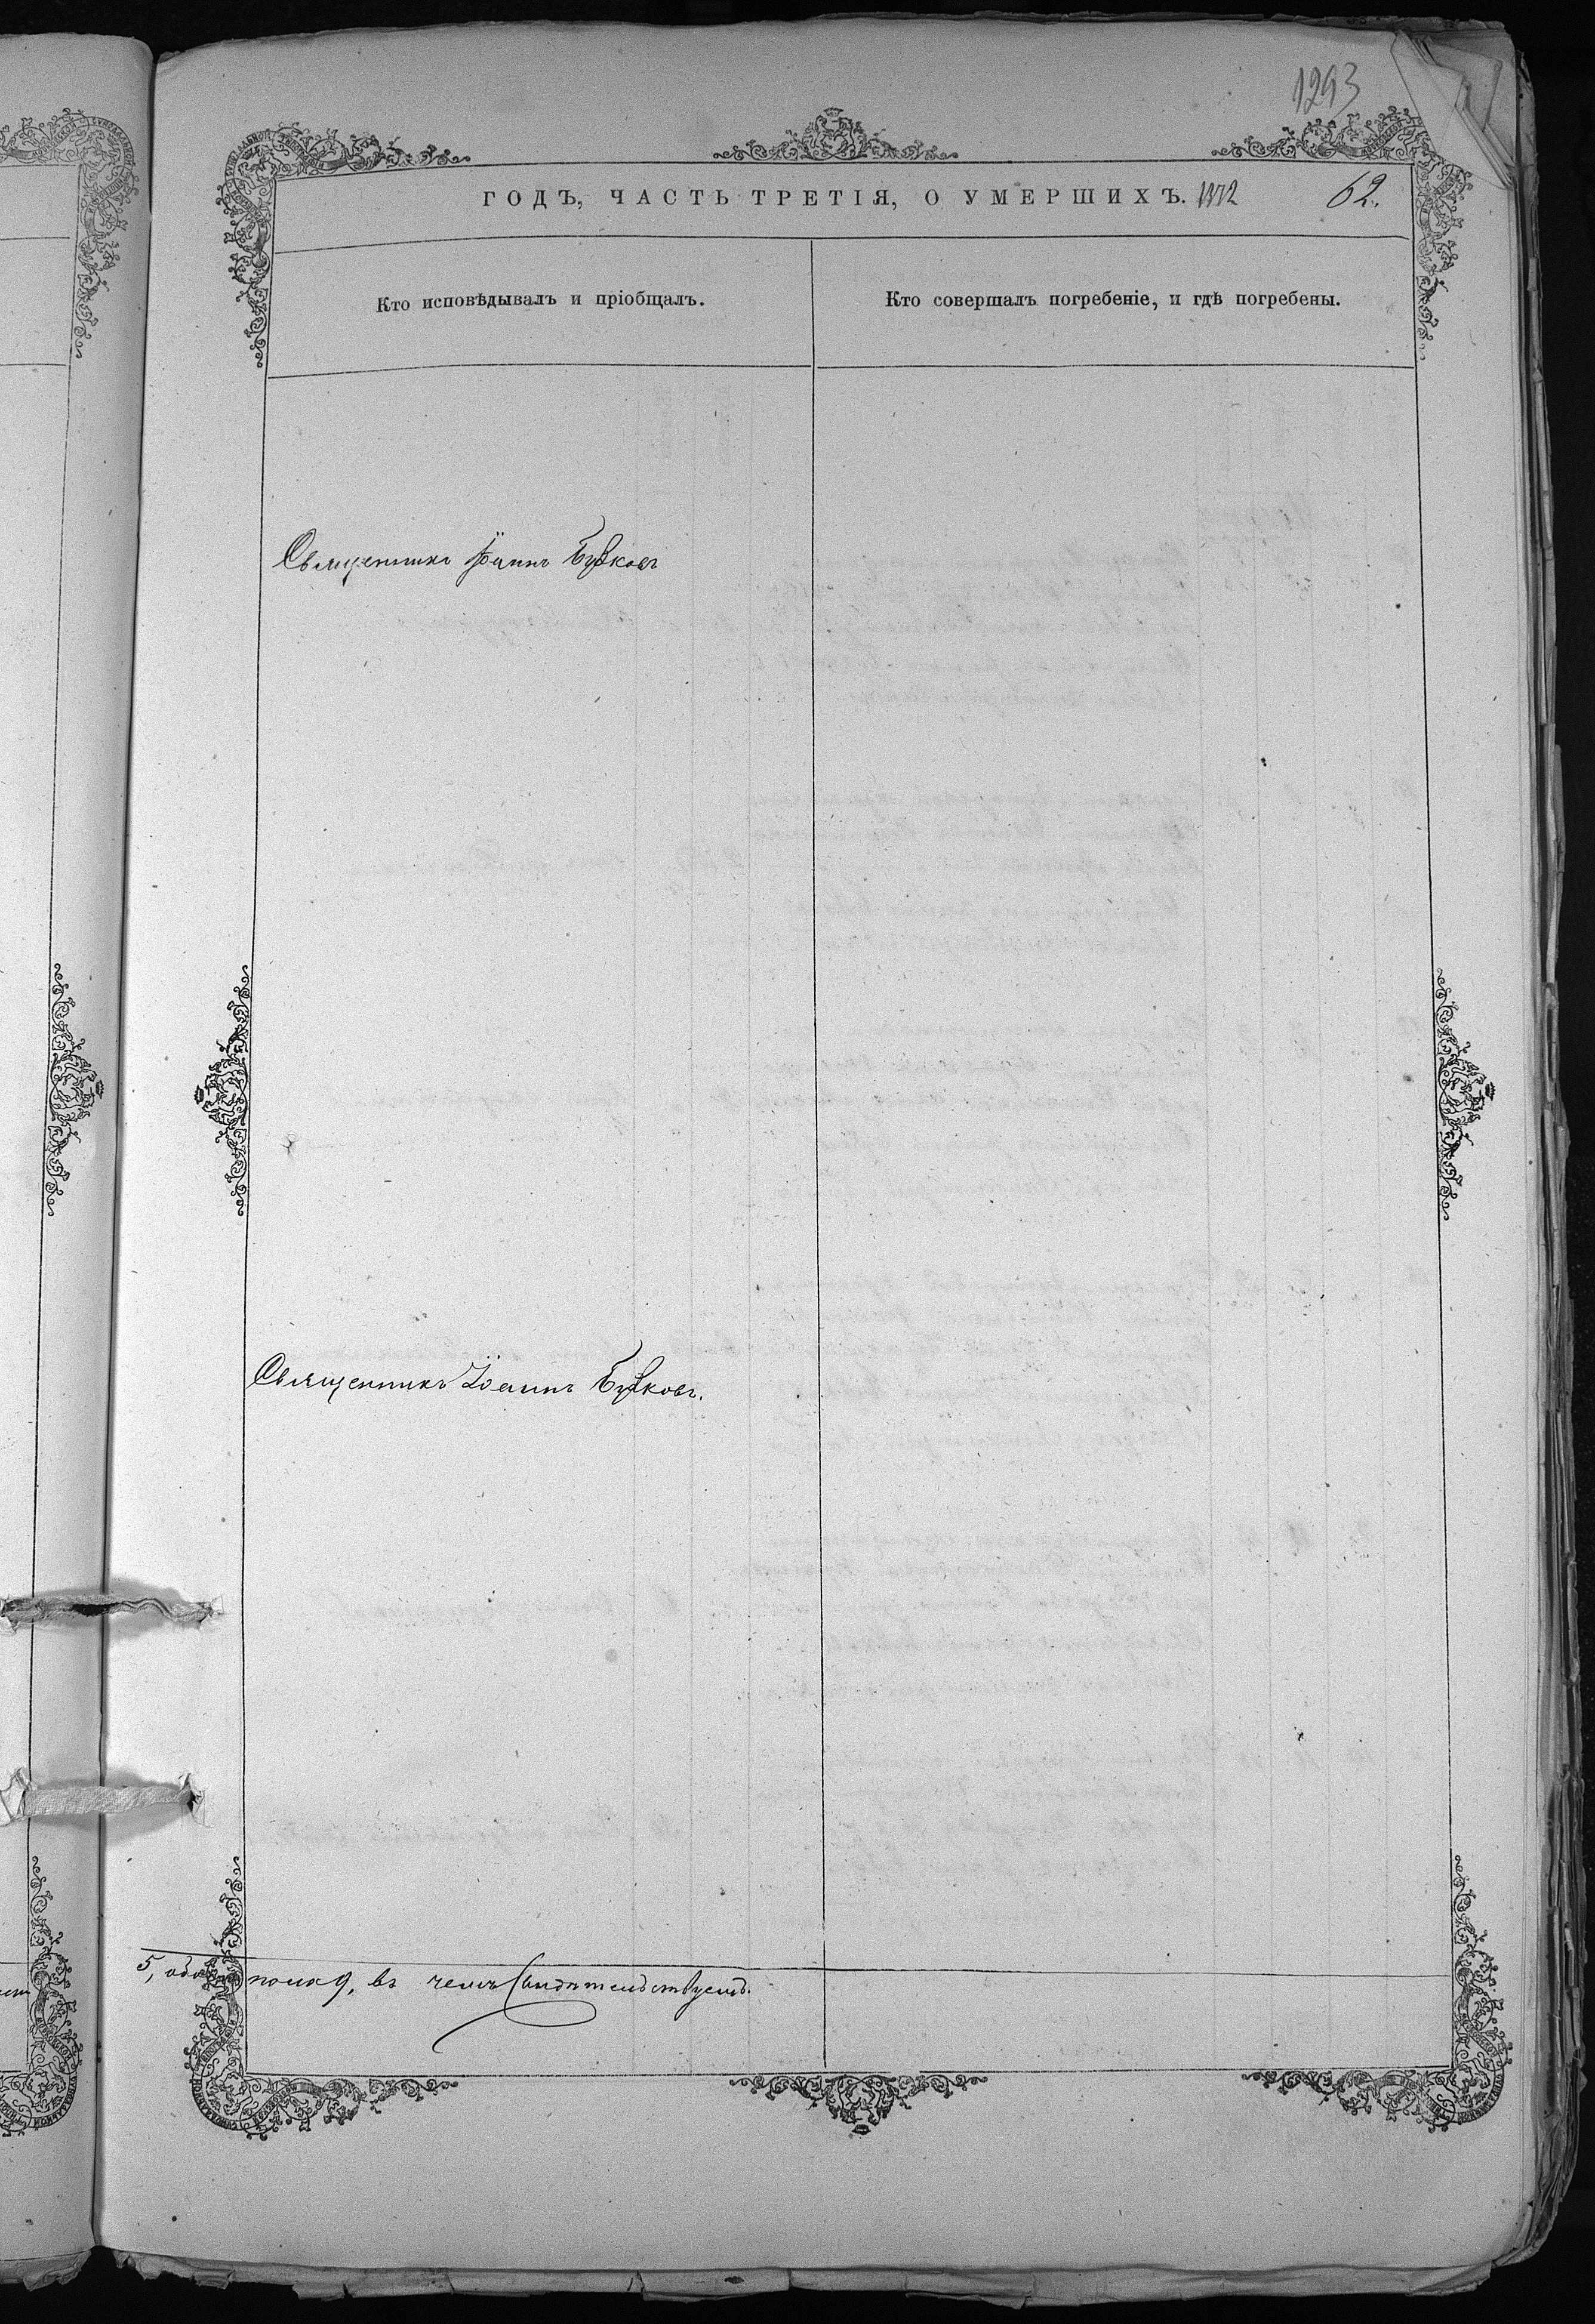 1293
ГОДЪ, ЧАСТЬ ТРЕТІЯ, О УМЕРШИХЪ. 1872
62.
Кто исповѣдывалъ и пріобщалъ.
Кто совершалъ погребеніе, и гдѣ погребены.
Священникъ Іоаннъ
Священникъ Іоаннъ
5, обоего пола 9, въ чемъ свидѣтельствуемъ.